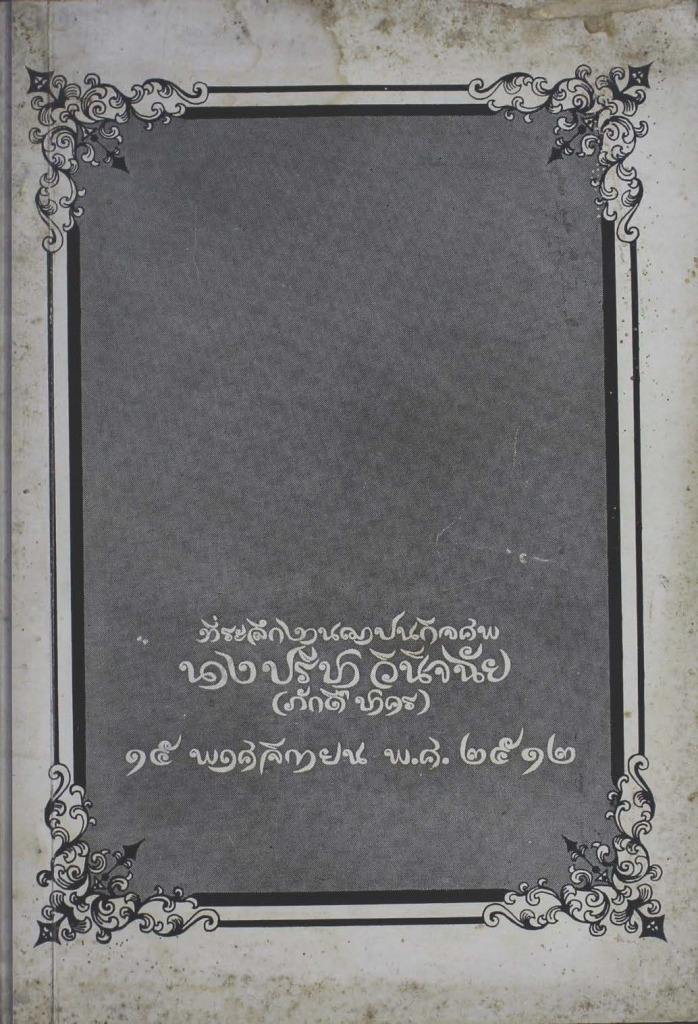 ที่ระลึกในงานฌาปนกิจศพ
นางปรีชาวินิจฉัย
(ภักดี
๑๕ พฤศจิกายน พ.ศ. ๒๕๑๒